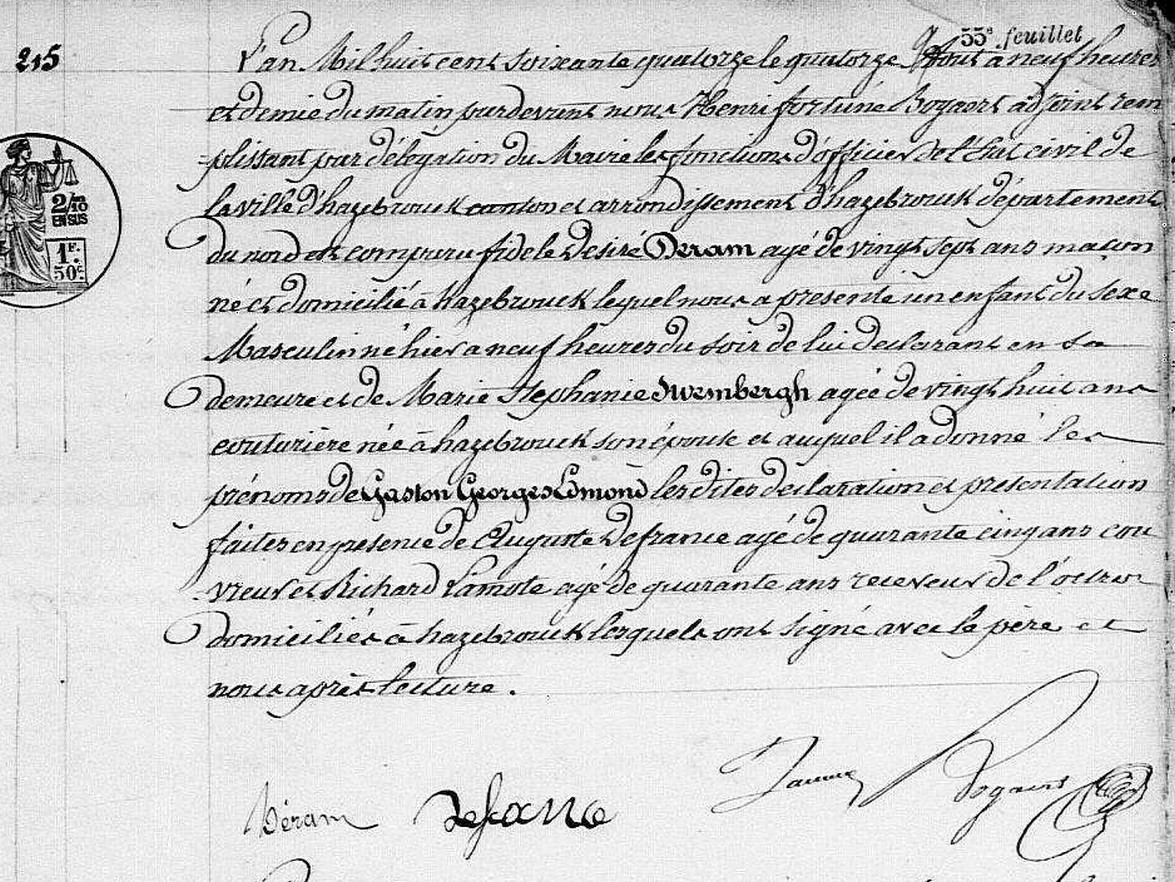 55e feuillet
215
L'an Mil huit cent soixante quatorze le quatorze Aout à neuf heures
et demie du matin pardevant nous Henri fortuné Bogaert adjoint rem
plissant par délégation du Maire les fonctions d'officier de l'Etat civil de
la ville d'hazebrouck canton et arrondissement d'hazebrouck département
du nord est comparu fidele Désiré Deram agé de vingt sept ans maçon
né et domicilié à hazebrouck lequel nous a presenté un enfant du sexe
Masculin né hier a neuf heures du soir de lui declarant en sa
demeure et de Marie Stephanie Swembergh agée de vingt huit ans
couturière née à hazebrouck son épouse et auquel il a donné les
prénoms de Gaston Georges Edmond les dites declaration et presentation
faites en presence de Auguste Defrance agé de quarante cinq ans cou
vreur et Richard Lamote agé de quarante ans receveur de l'octroi
domiciliés à hazebrouck lesquels ont signé avec le père et
nous après lecture.
2/10
EN SUS
1F.
50c
Déram